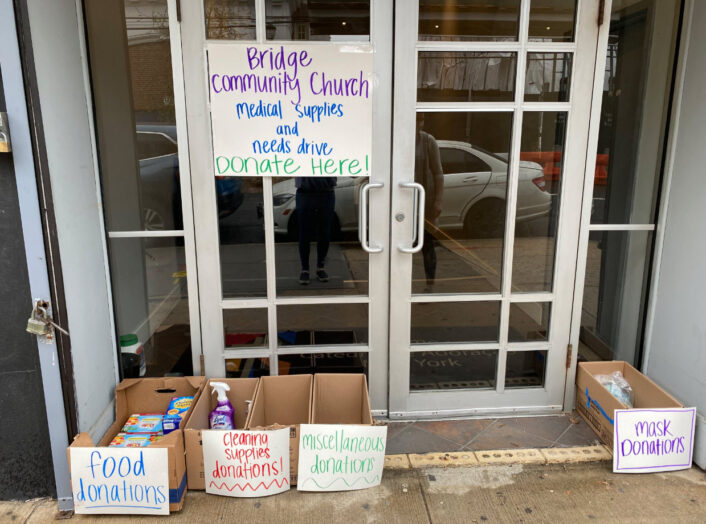 Bridge
Community Church
Medical Supplies
and
needs drive
Donate Here!
food
donations
Cleaning
Supplies
donations!
miscellaneous
donations
Mask
Donations
York